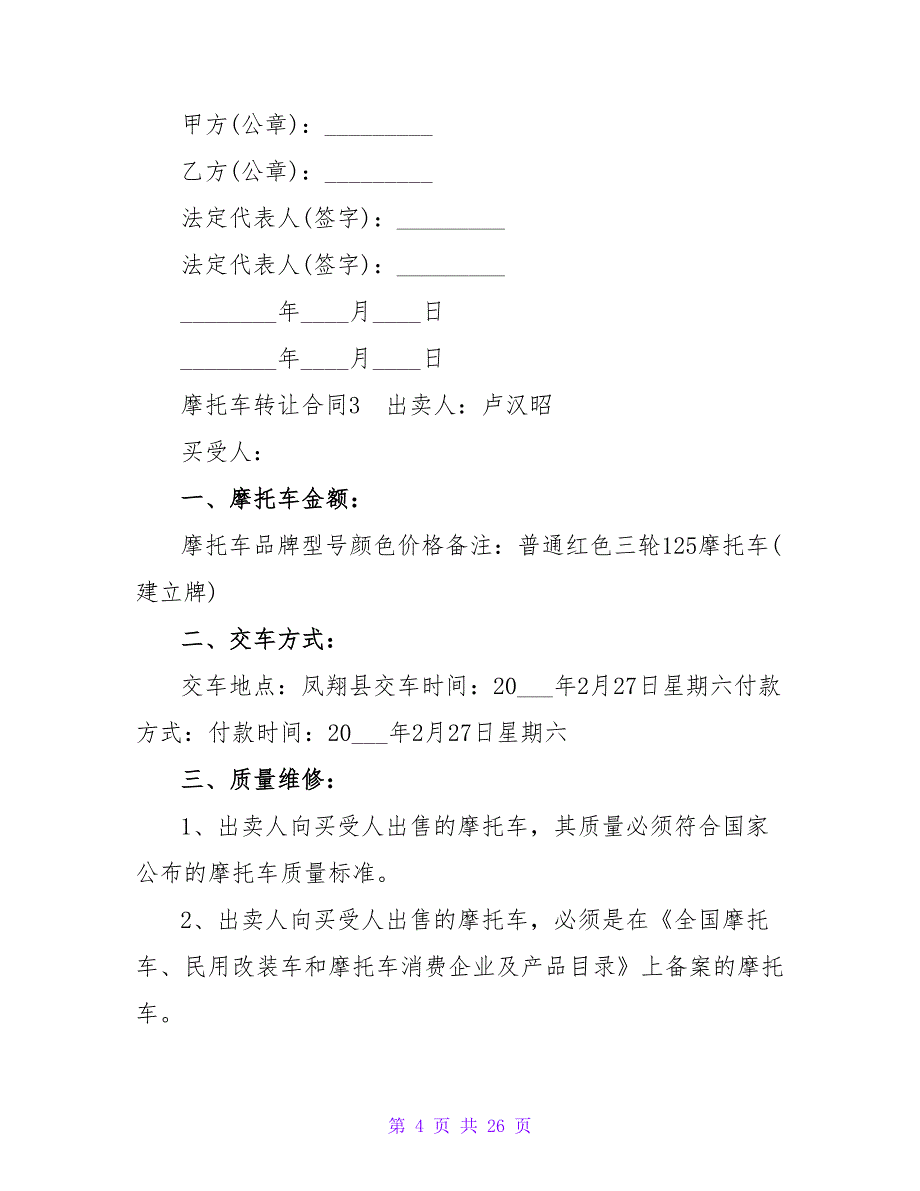 甲方(公章)：_________
乙方(公章)：_________
法定代表人(签字)：_________
法定代表人(签字)：_________
________年____月____日
________年____月____日
摩托车转让合同3　出卖人：卢汉昭
买受人：
一、摩托车金额：
摩托车品牌型号颜色价格备注：普通红色三轮125摩托车(
建立牌)
二、交车方式：
交车地点：凤翔县交车时间：20___年2月27日星期六付款
方式：付款时间：20___年2月27日星期六
三、质量维修：
1、出卖人向买受人出售的摩托车，其质量必须符合国家
公布的摩托车质量标准。
2、出卖人向买受人出售的摩托车，必须是在《全国摩托
车、民用改装车和摩托车消费企业及产品目录》上备案的摩托
车。
第 4 页 共 26 页